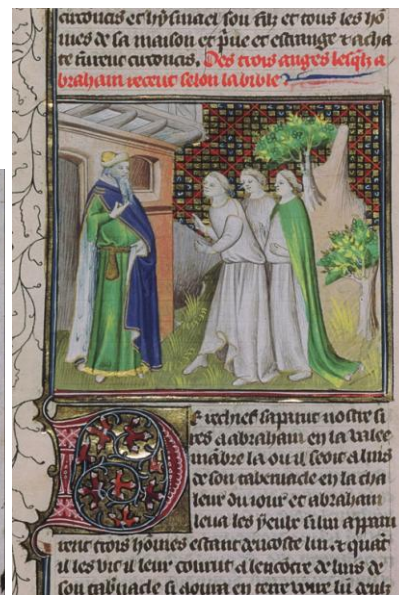 circoncis et hysmael son filz et tous les hõ
mes de sa maison et priue et estrange ⁊ acha
te furent circoncis. Des trois anges lesq̃lz a
braham receut selon la bible
De rechief saparut nostre si
res a abraham en la valee
mãbre la ou il seoit a luis
de son tabernacle en la cha
leur du iour et abraham
leua les yeulx si lui apparu
rent trois hõmes estant decoste lui. ⁊ quãt
il les vit il leur courut a lencõtre de luis de
son tab'nacle si aoura en terre